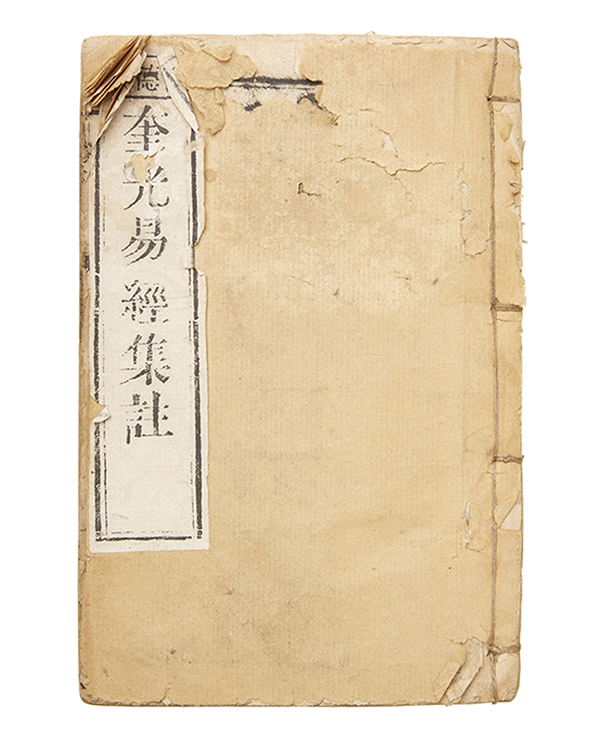 德
奎光易經集註